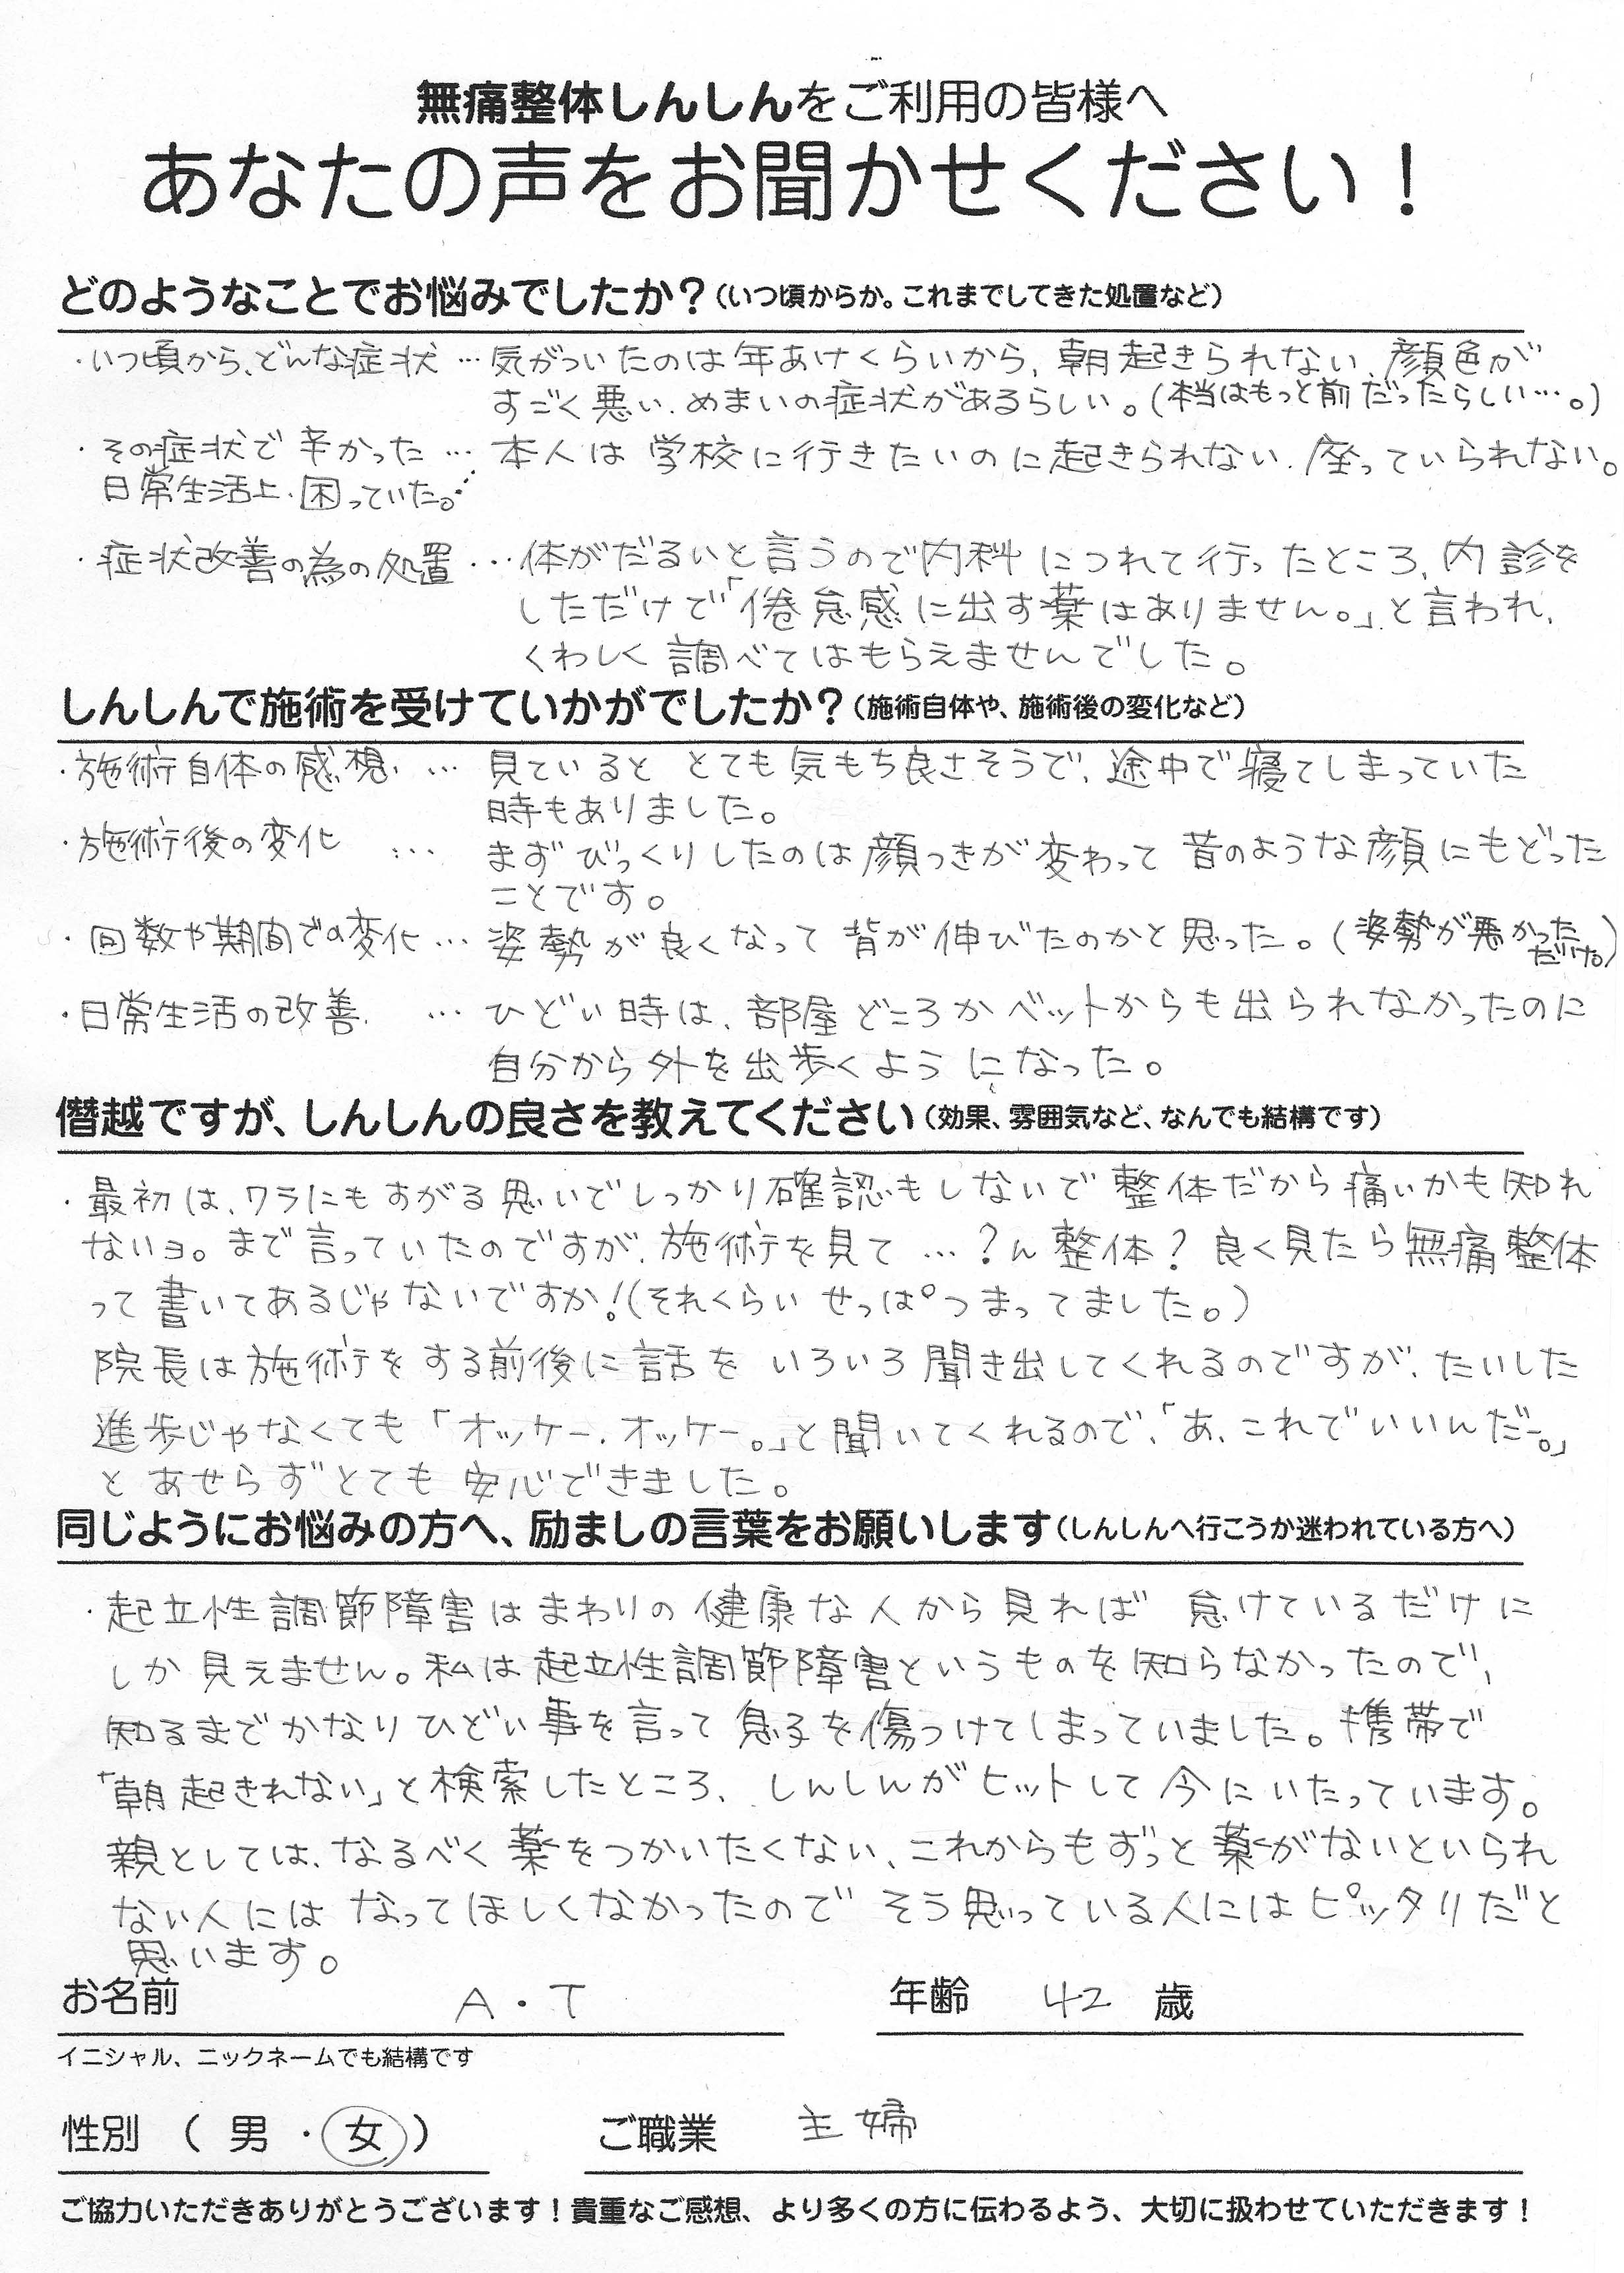 無痛整体しんしんをご利用の皆様へ
あなたの声をお聞かせください！
どのようなことでお悩みでしたか？（いつ頃からか。これまでしてきた処置など）
・いつ頃から、どんな症状 … 気がついたのは年あけくらいから、朝起きられない、顔色が
すごく悪い、めまいの症状があるらしい。（本当はもっと前だったらしい…。）
・その症状で辛かった … 本人は学校に行きたいのに起きられない、座っていられない。
日常生活上、困っていた。
・症状改善の為の処置 … 体がだるいと言うので内科につれて行ったところ、内診を
しただけで「倦怠感に出す薬はありません。」と言われ、
くわしく調べてはもらえませんでした。
しんしんで施術を受けていかがでしたか？（施術自体や、施術後の変化など）
・施術自体の感想、… 見ていると とても気もち良さそうで、途中で寝てしまっていた
時もありました。
・施術後の変化 … まずびっくりしたのは顔つきが変わって昔のような顔にもどった
ことです。
・回数や期間での変化 … 姿勢が良くなって背が伸びたのかと思った。（姿勢が悪かった
だけ）
・日常生活の改善、 … ひどい時は、部屋どころかベットからも出られなかったのに
自分から外を出歩くようになった。
僭越ですが、しんしんの良さを教えてください（効果、雰囲気など、なんでも結構です）
・最初は、ワラにもすがる思いでしっかり確認もしないで整体だから痛いかも知れ
ないヨ。まで言っていたのですが、施術を見て…？ん整体？良く見たら無痛整体
って書いてあるじゃないですか！（それくらいせっぱつまってました。）
院長は施術をする前後に話をいろいろ聞き出してくれるのですが、たいした
進歩じゃなくても「オッケー、オッケー。」と聞いてくれるので、「あ、これでいいんだー。」
とあせらずとても安心できました。
同じようにお悩みの方へ、励ましの言葉をお願いします（しんしんへ行こうか迷われている方へ）
・起立性調節障害はまわりの健康な人から見れば怠けているだけに
しか見えません。私は起立性調節障害というものを知らなかったので、
知るまでかなりひどい事を言って息子を傷つけてしまっていました。携帯で
「朝起きれない」と検索したところ、しんしんがヒットして今にいたっています。
親としては、なるべく薬をつかいたくない、これからもずっと薬がないといられ
ない人にはなってほしくなかったのでそう思っている人にはピッタリだと
思います。
お名前 A・T 年齢 42 歳
イニシャル、ニックネームでも結構です
性別 （ 男 ・ 女 ） ご職業 主婦
ご協力いただきありがとうございます！貴重なご感想、より多くの方に伝わるよう、大切に扱わせていただきます！